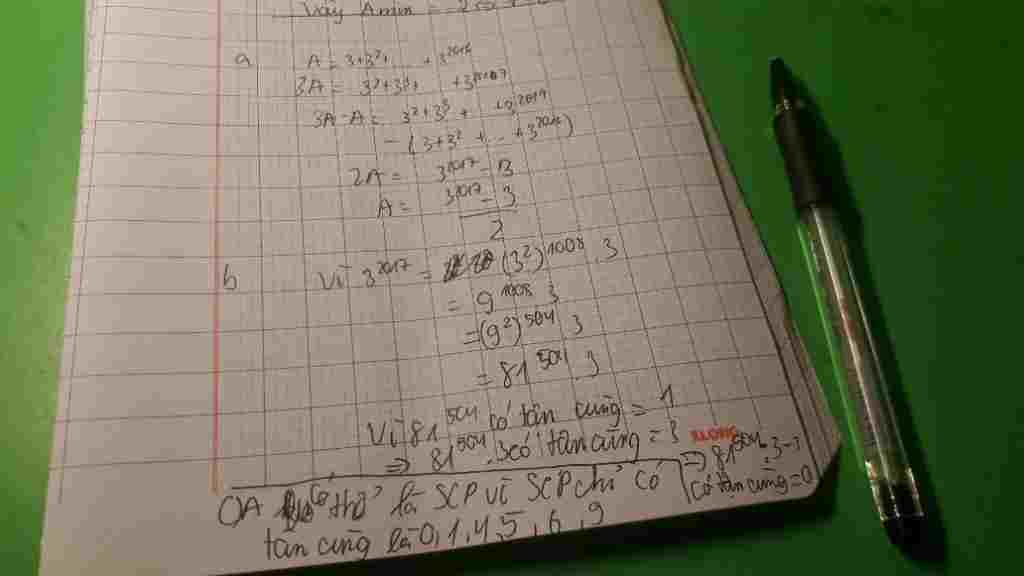 Vậy Amin =
a A = 3+3²+ ... +3²⁰¹⁶
3A = 3²+3³+ +3²⁰¹⁷
3A-A = 3²+3³+ +3²⁰¹⁷
- (3+3² + ... +3²⁰¹⁶)
2A = 3²⁰¹⁷ - 3
A = 3²⁰¹⁷ - 3
2
b Vì 3²⁰¹⁷ = (3²)¹⁰⁰⁸ . 3
= 9¹⁰⁰⁸ . 3
= (9²)⁵⁰⁴ . 3
= 81⁵⁰⁴ . 3
Vì 81⁵⁰⁴ có tận cùng = 1
⇒ 81⁵⁰⁴ . 3 có tận cùng = 3
⇒ 81⁵⁰⁴ . 3 - 3
có tận cùng = 0
A thể là SCP vì SCP chỉ có
tận cùng là 0, 1, 4, 5, 6, 9